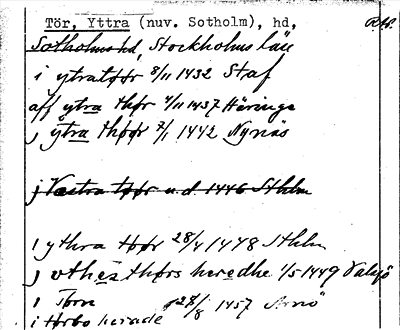 Tör, Yttra (nuv. Sotholm), hd,
Sotholms hd, Stockholms län
i ytratøør 8/11 1432 Staf
aff ytra thør 4/11 1437 Häringe
j ytra thøør 7/1 1442 Nynäs
j Vestra tøør u.d. 1446 Sthlm
i ythra thør 28/4 1448 Sthlm
j øthes thørs heredhe 1/5 1449 Valsjö
i Törn 27/8 1457 Arnö
i tørbo herade